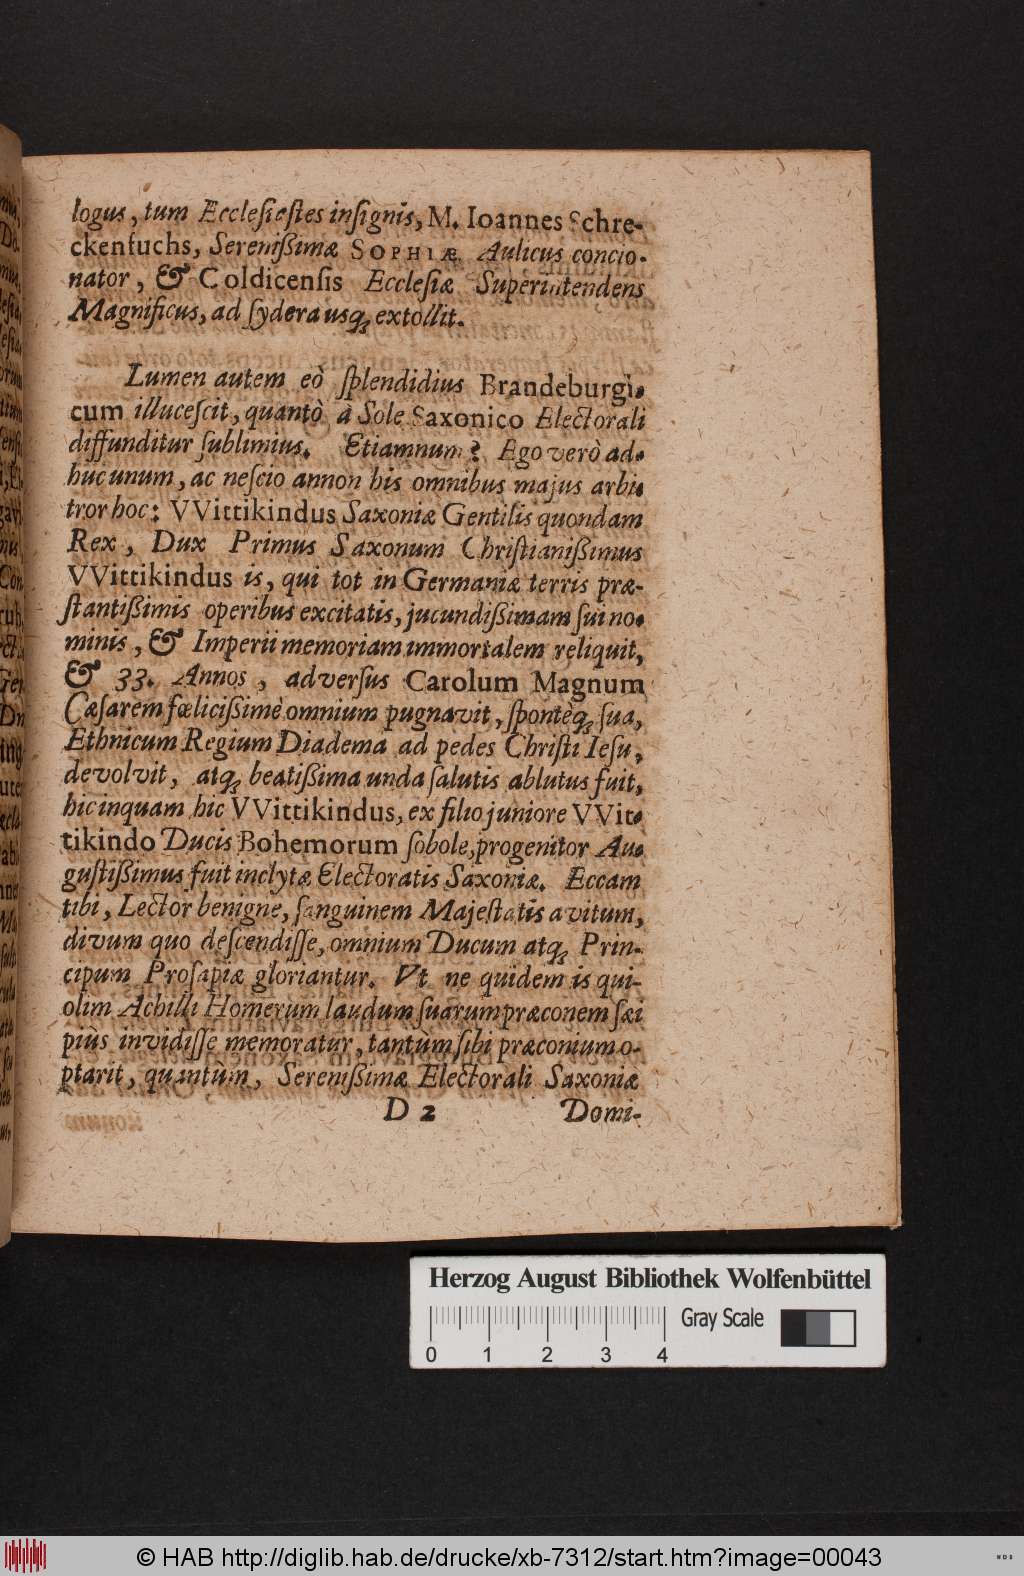 logus, tum Eccleſieſtes inſignis, M. Ioannes Schre-
ckenfuchs, Sereniſsimæ SOPHIÆ Aulicus concio-
nator, & Coldicenſis Eccleſiæ Superintendens
Magnificus, ad ſydera usq́ extollit.
Lumen autem eò ſplendidius Brandeburgi-
cum illuceſcit, quantò à Sole Saxonico Electorali
diffunditur ſublimius. Etiamnum? Ego verò ad-
huc unum, ac neſcio annon his omnibus majus arbi-
tror hoc: VVittikindus Saxoniæ Gentilis quondam
Rex, Dux Primus Saxonum Chriſtianiſsimus
VVittikindus is, qui tot in Germaniæ terris præ-
ſtantiſsimis operibus excitatis, jucundiſsimam ſui no-
minis, & Imperii memoriam immortalem reliquit,
& 33. Annos, adverſus Carolum Magnum
Cæſarem fœliciſsimè omnium pugnavit, ſpontèq́ ſua,
Ethnicum Regium Diadema ad pedes Chriſti Ieſu,
devolvit, atq́ beatiſsima unda ſalutis ablutus fuit,
hic inquam hic VVittikindus, ex filio juniore VVit-
tikindo Ducis Bohemorum ſobole, progenitor Au-
guſtiſsimus fuit inclytæ Electoratis Saxoniæ. Eccam
tibi, Lector benigne, ſanguinem Majeſtatis avitum,
divum quo deſcendiſſe, omnium Ducum atq́ Prin-
cipum Proſapiæ gloriantur. Vt ne quidem is qui-
olim Achilli Homerum laudum ſuarum præconem ſæi
piùs invidiſſe memoratur, tantùm ſibi præconium o-
ptarit, quantum, Sereniſsimæ Electorali Saxoniæ
D 2 Domi-
Herzog August Bibliothek Wolfenbüttel
0 1 2 3 4 Gray Scale
© HAB http://diglib.hab.de/drucke/xb-7312/start.htm?image=00043